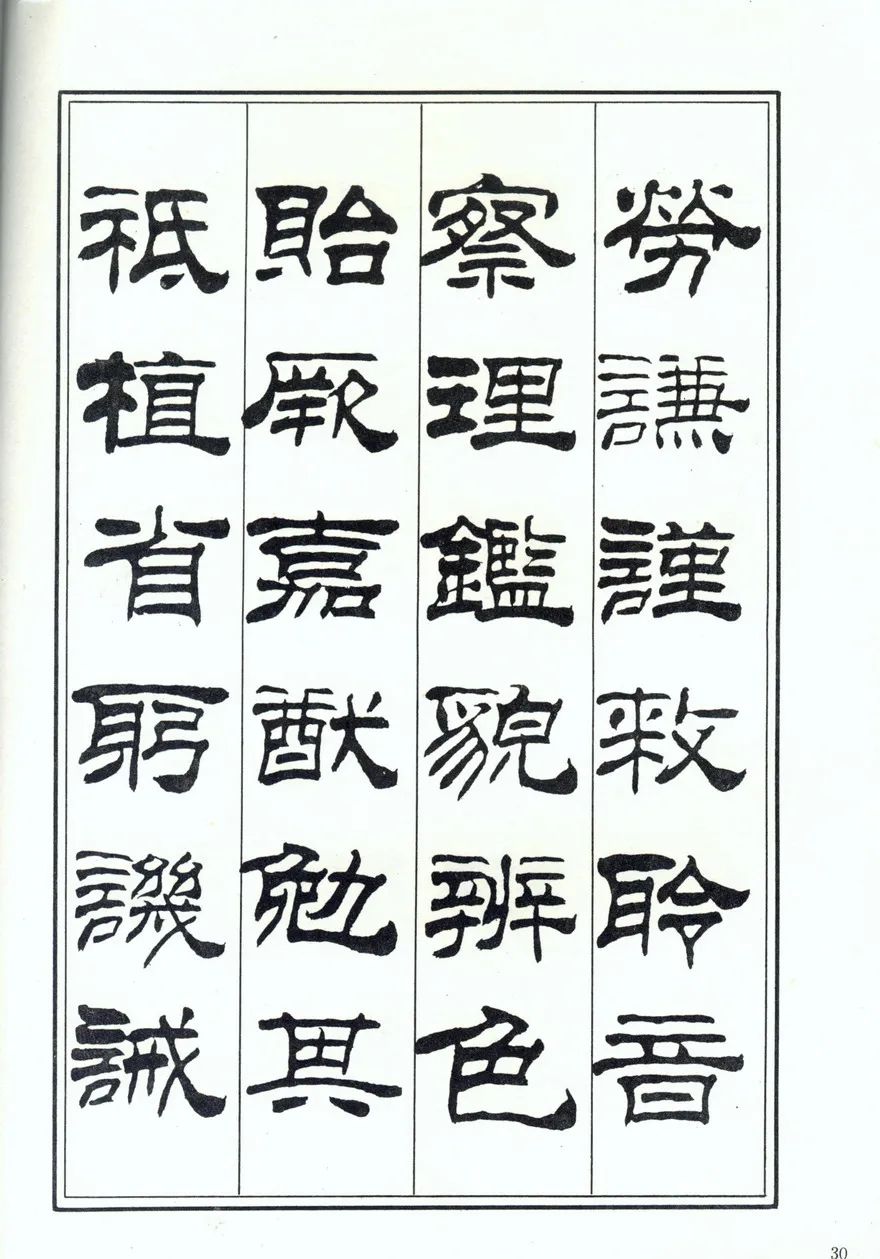 勞謙謹敕聆音
察理鑑貌辨色
貽厥嘉猷勉其
祗植省躬譏誡
30